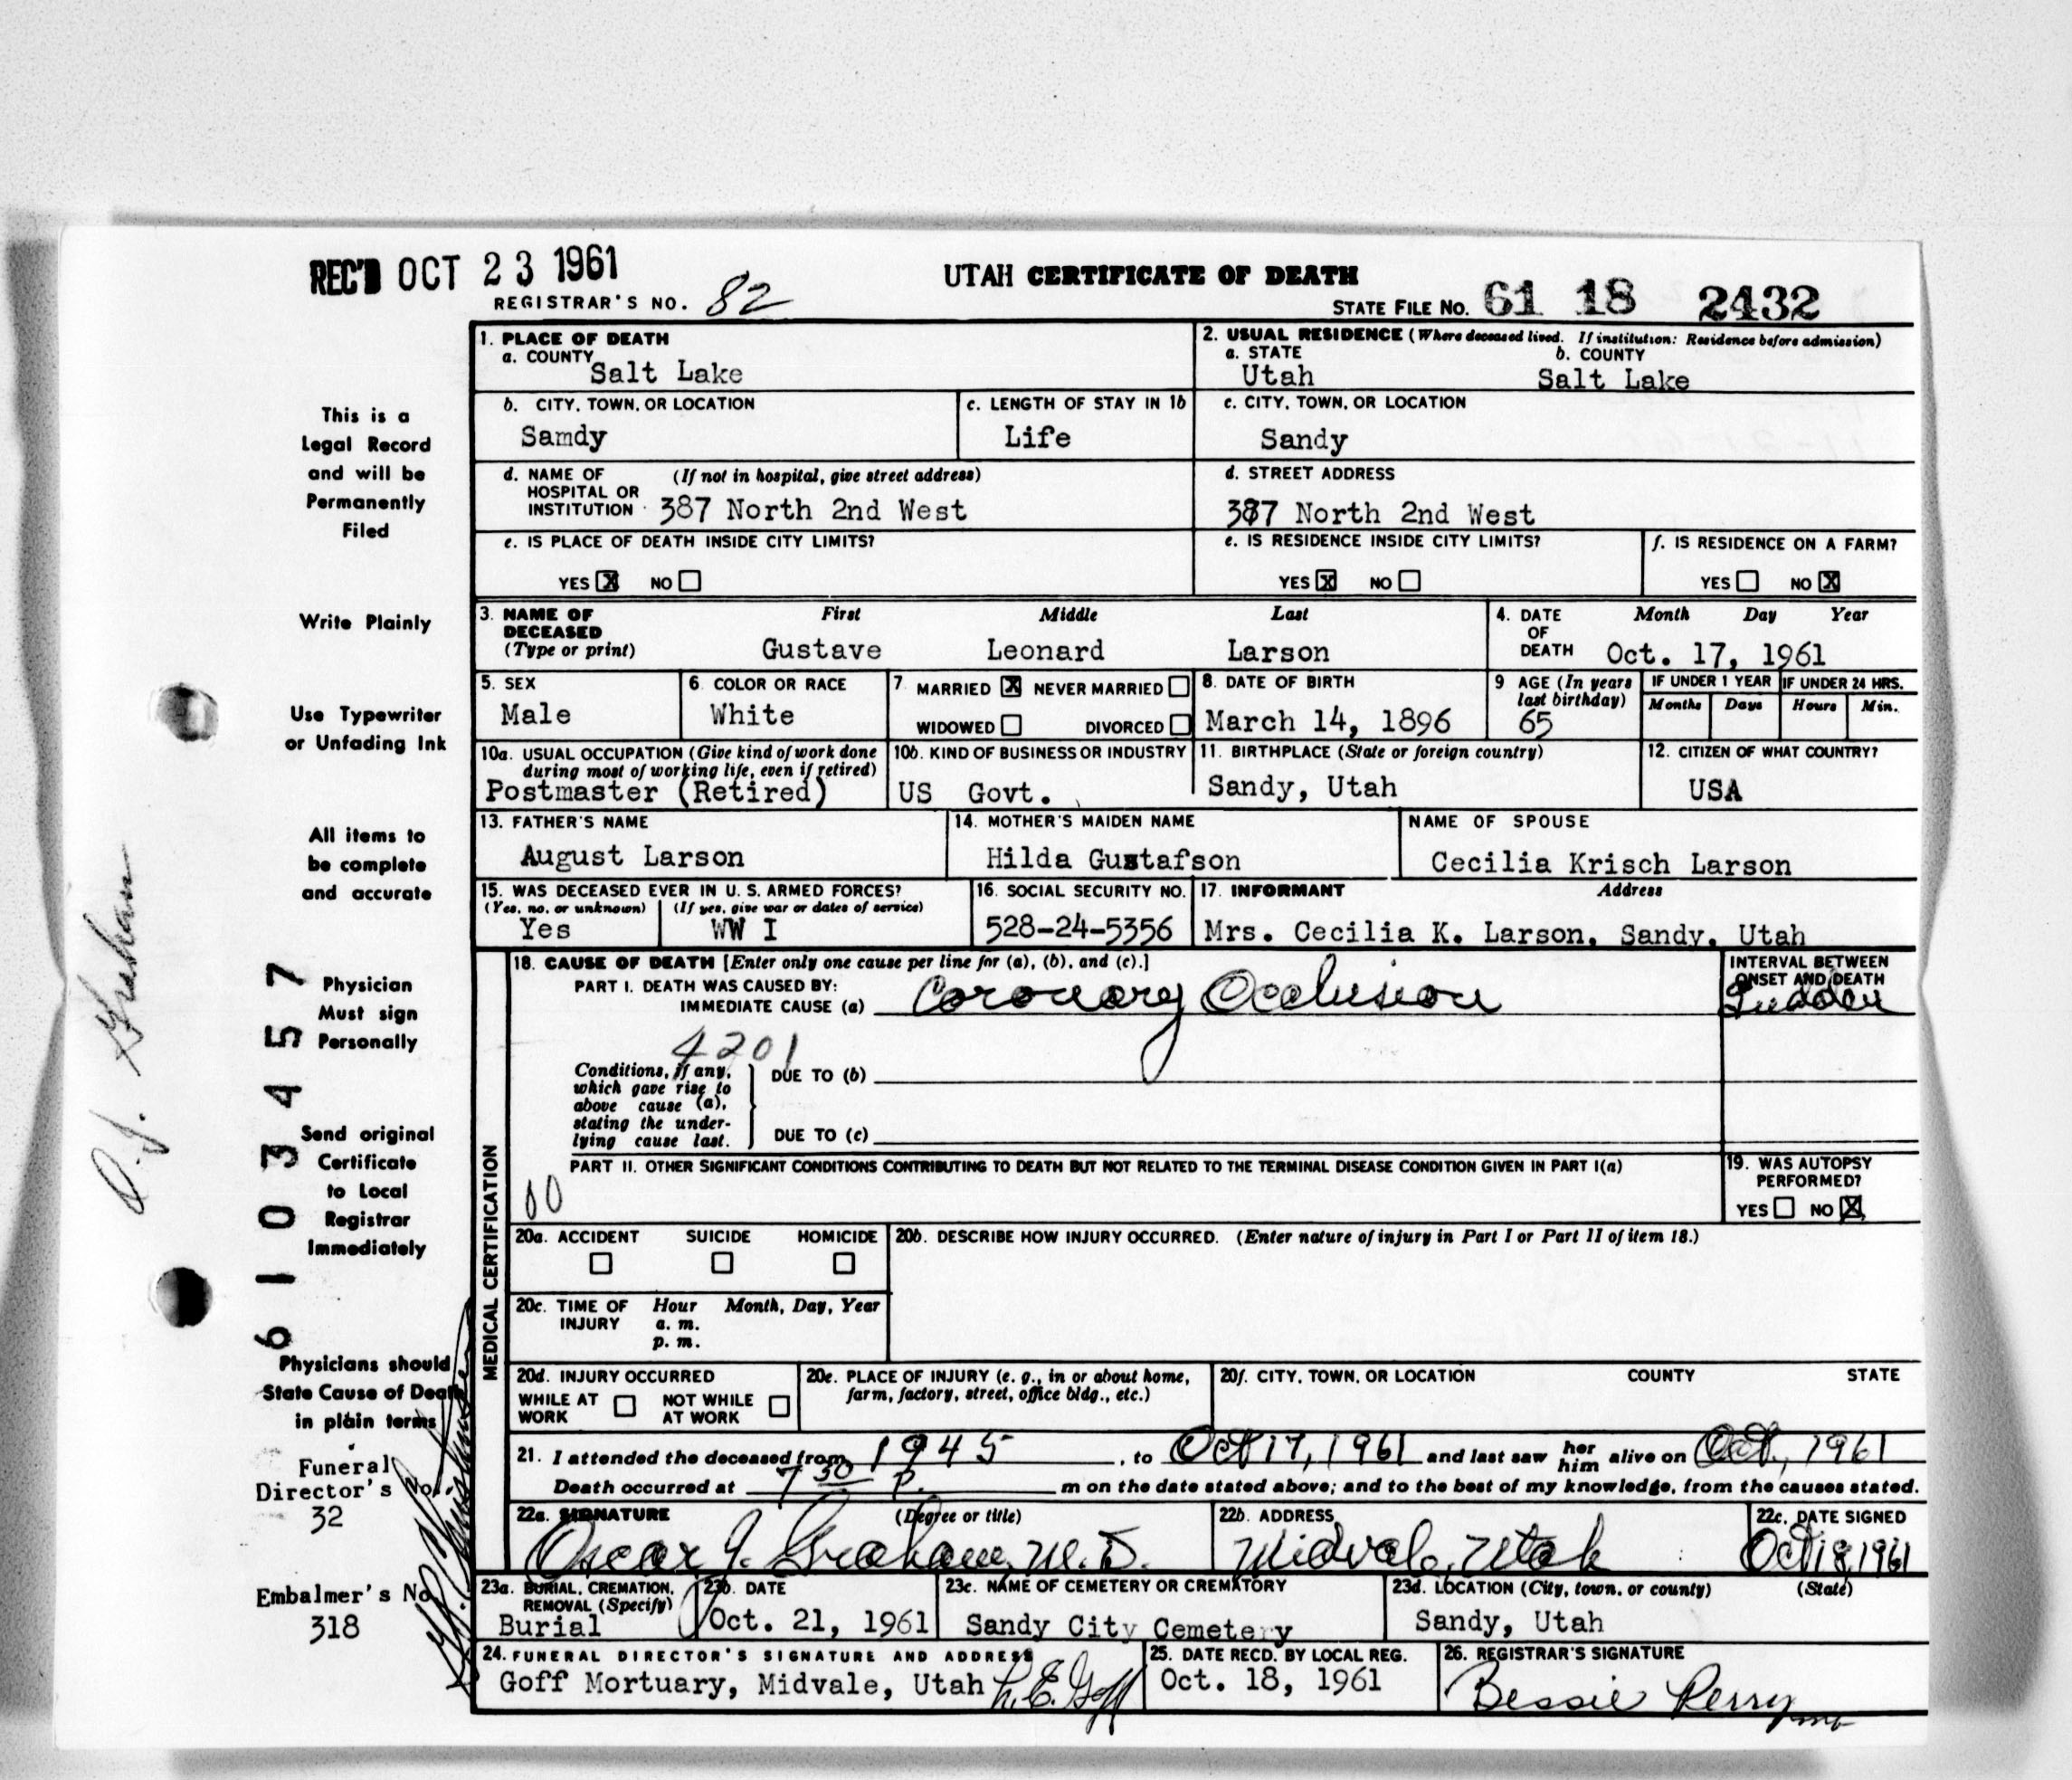 REC'D OCT 23 1961
UTAH CERTIFICATE OF DEATH
REGISTRAR'S NO. 82
STATE FILE NO. 61 18 2432
1. PLACE OF DEATH
a. COUNTY
Salt Lake
2. USUAL RESIDENCE (Where deceased lived. If institution: Residence before admission)
a. STATE b. COUNTY
Utah Salt Lake
b. CITY, TOWN, OR LOCATION
Samdy
c. LENGTH OF STAY IN 1b
Life
c. CITY, TOWN, OR LOCATION
Sandy
d. NAME OF (If not in hospital, give street address)
HOSPITAL OR
INSTITUTION 387 North 2nd West
d. STREET ADDRESS
387 North 2nd West
e. IS PLACE OF DEATH INSIDE CITY LIMITS?
YES X NO
e. IS RESIDENCE INSIDE CITY LIMITS?
YES X NO
f. IS RESIDENCE ON A FARM?
YES NO X
3. NAME OF First Middle Last
DECEASED
(Type or print) Gustave Leonard Larson
4. DATE Month Day Year
OF
DEATH Oct. 17, 1961
5. SEX
Male
6. COLOR OR RACE
White
7. MARRIED X NEVER MARRIED
WIDOWED DIVORCED
8. DATE OF BIRTH
March 14, 1896
9. AGE (In years
last birthday)
65
IF UNDER 1 YEAR
Months Days
IF UNDER 24 HRS.
Hours Min.
10a. USUAL OCCUPATION (Give kind of work done
during most of working life, even if retired)
Postmaster (Retired)
10b. KIND OF BUSINESS OR INDUSTRY
US Govt.
11. BIRTHPLACE (State or foreign country)
Sandy, Utah
12. CITIZEN OF WHAT COUNTRY?
USA
13. FATHER'S NAME
August Larson
14. MOTHER'S MAIDEN NAME
Hilda Gustafson
NAME OF SPOUSE
Cecilia Krisch Larson
15. WAS DECEASED EVER IN U. S. ARMED FORCES?
(Yes, no, or unknown) (If yes, give war or dates of service)
Yes WW I
16. SOCIAL SECURITY NO.
528-24-5356
17. INFORMANT Address
Mrs. Cecilia K. Larson, Sandy, Utah
MEDICAL CERTIFICATION
18. CAUSE OF DEATH [Enter only one cause per line for (a), (b), and (c).]
PART I. DEATH WAS CAUSED BY:
IMMEDIATE CAUSE (a) Coronary Occlusion
INTERVAL BETWEEN
ONSET AND DEATH
Sudden
4201
Conditions, if any,
which gave rise to
above cause (a),
stating the under-
lying cause last.
DUE TO (b)
DUE TO (c)
PART II. OTHER SIGNIFICANT CONDITIONS CONTRIBUTING TO DEATH BUT NOT RELATED TO THE TERMINAL DISEASE CONDITION GIVEN IN PART I(a)
19. WAS AUTOPSY
PERFORMED?
YES NO X
20a. ACCIDENT SUICIDE HOMICIDE
20b. DESCRIBE HOW INJURY OCCURRED. (Enter nature of injury in Part I or Part II of item 18.)
20c. TIME OF Hour Month, Day, Year
INJURY a. m.
p. m.
20d. INJURY OCCURRED
WHILE AT NOT WHILE
WORK AT WORK
20e. PLACE OF INJURY (e. g., in or about home,
farm, factory, street, office bldg., etc.)
20f. CITY, TOWN, OR LOCATION COUNTY STATE
21. I attended the deceased from 1945, to Oct 17, 1961 and last saw her him alive on Oct., 1961
Death occurred at 7 30 P. m on the date stated above; and to the best of my knowledge, from the causes stated.
22a. SIGNATURE (Degree or title)
Oscar J. Graham, M. D.
22b. ADDRESS
Midvale, Utah
22c. DATE SIGNED
Oct 18, 1961
23a. BURIAL, CREMATION,
REMOVAL (Specify)
Burial
23b. DATE
Oct. 21, 1961
23c. NAME OF CEMETERY OR CREMATORY
Sandy City Cemetery
23d. LOCATION (City, town, or county) (State)
Sandy, Utah
24. FUNERAL DIRECTOR'S SIGNATURE AND ADDRESS
Goff Mortuary, Midvale, Utah L. E. Goff
25. DATE RECD. BY LOCAL REG.
Oct. 18, 1961
26. REGISTRAR'S SIGNATURE
Bessie Perry
This is a
Legal Record
and will be
Permanently
Filed
Write Plainly
Use Typewriter
or Unfading Ink
All items to
be complete
and accurate
Physician
Must sign
Personally
Send original
Certificate
to Local
Registrar
Immediately
Physicians should
State Cause of Death
in plain terms
Funeral
Director's No.
32
Embalmer's No
318
6103457
O. J. Graham